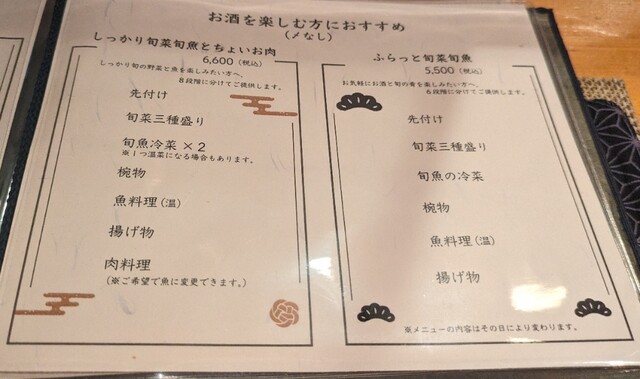 お酒を楽しむ方におすすめ
(〆なし)
しっかり旬菜旬魚とちょいお肉
6,600(税込)
しっかり旬の野菜と魚を楽しみたい方へ、
8段階に分けてご提供します。
先付け
旬菜三種盛り
旬魚冷菜×2
※1つ温菜になる場合もあります。
椀物
魚料理(温)
揚げ物
肉料理
(※ご希望で魚に変更できます。)
ふらっと旬菜旬魚
5,500(税込)
お気軽にお酒と旬の肴を楽しみたい方へ、
6段階に分けてご提供します。
先付け
旬菜三種盛り
旬魚の冷菜
椀物
魚料理(温)
揚げ物
※メニューの内容はその日により変わります。